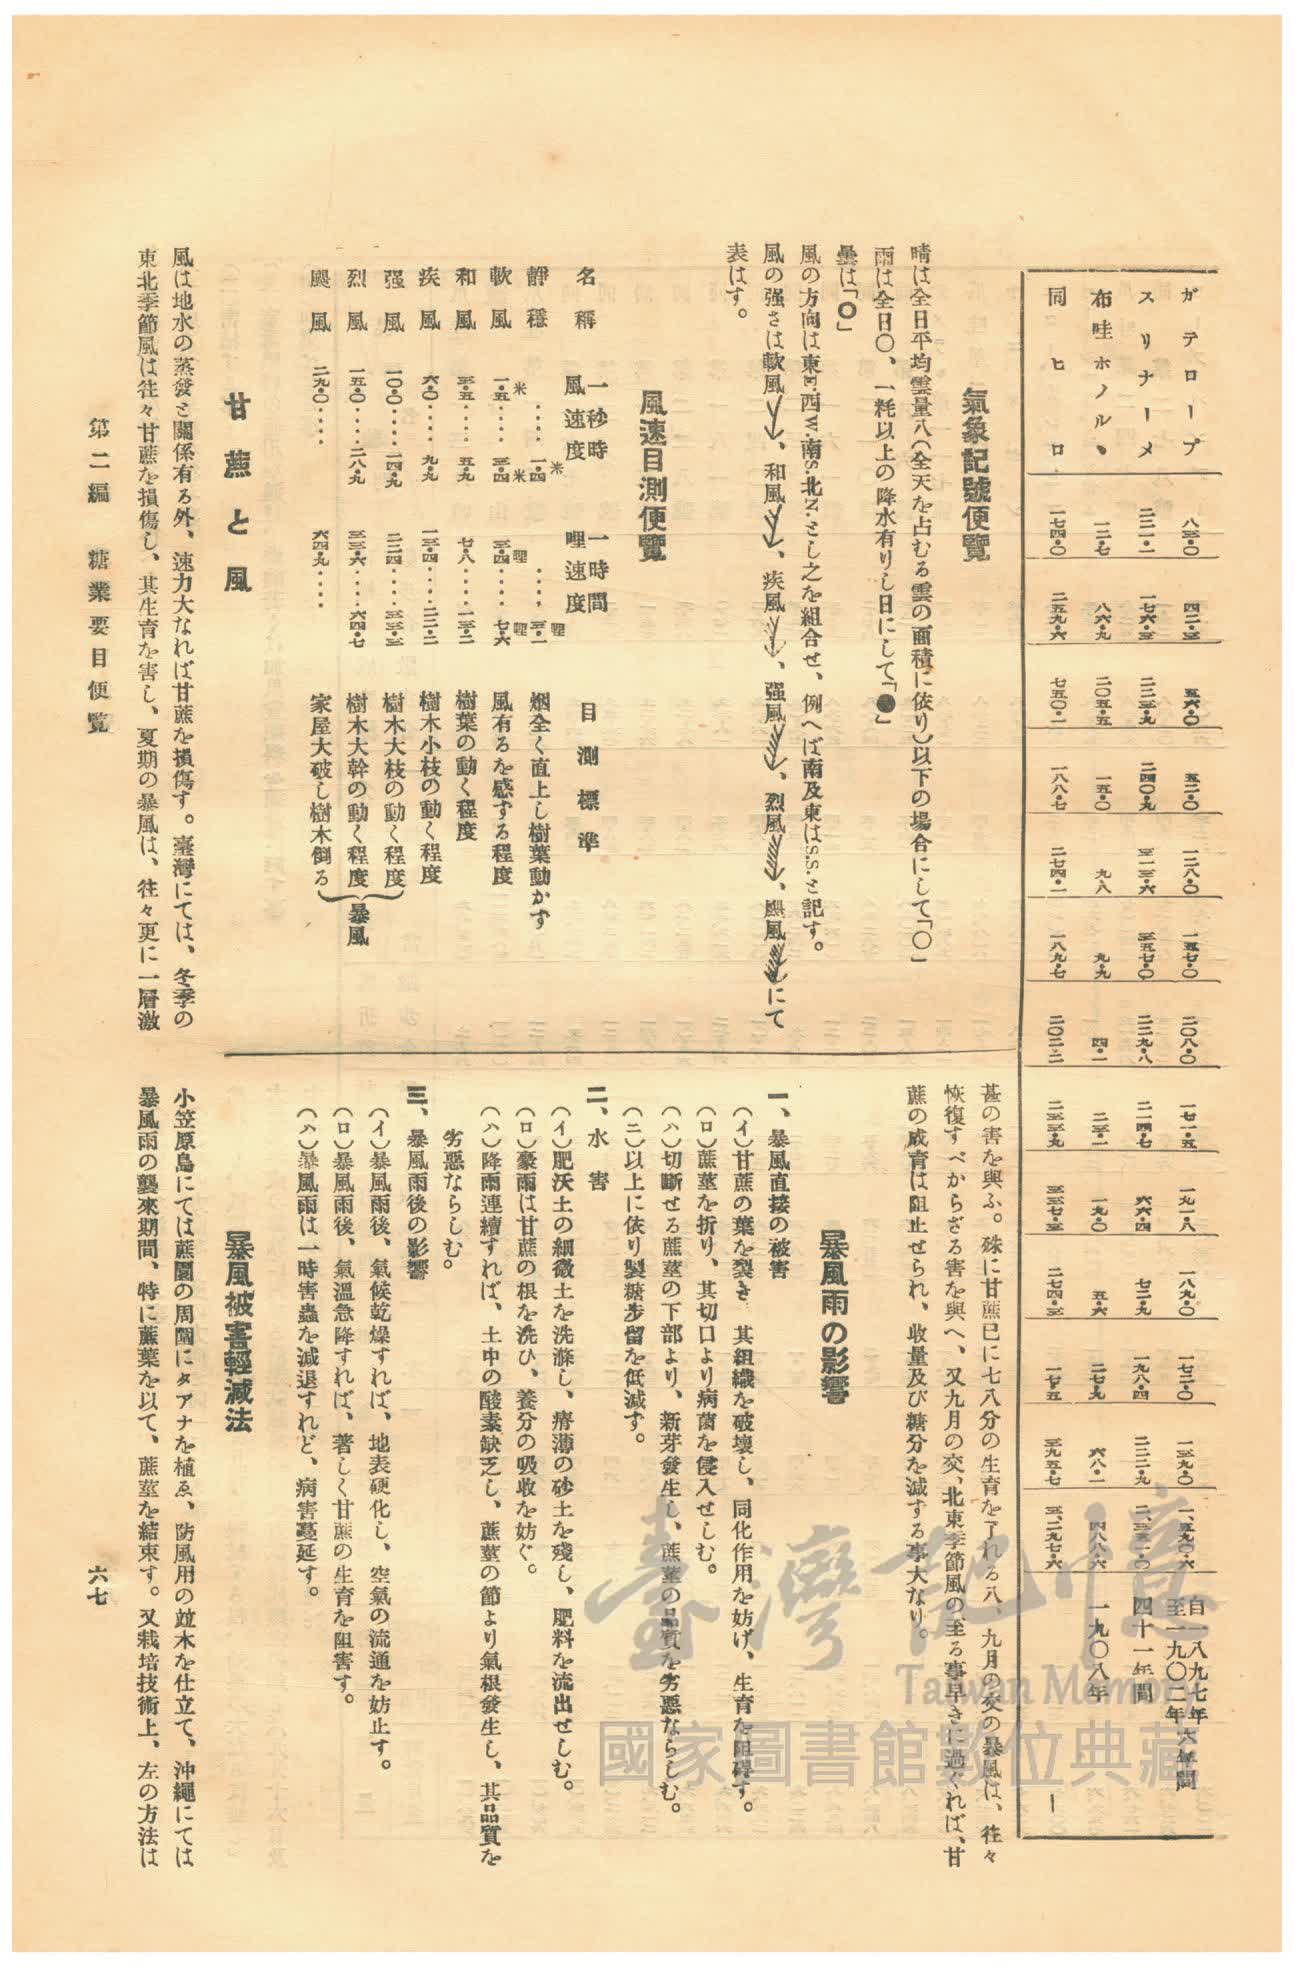 ガテロープ 八三・〇 四二・三 五六・〇 五二・〇 一二八・〇 一五七・〇 二〇八・〇 一七一・五 一九一・八 一八九・〇 一七二・〇 一三九・〇 一、五九〇・六 自一八九七年至一九〇二年六年間
スリナーメ 二二一・二 一七六・三 二二三・九 二四〇・九 三一三・六 三五七・〇 二二九・八 二一四・七 六六・四 七二・九 一九八・四 二二二・九 四十一年間
布哇ホノルル 一二・七 八六・九 二〇五・五 一五・〇 九・八 九・九 四・一 二三・一 一九・〇 五・六 二七・九 六八・一 四八八・六 一九〇八年
同ヒロ 一七四・〇 二五九・六 七五〇・一 一八八・七 二七四・一 一八九・七 二〇二・二 二三三・九 三三七・三 二七四・三 一七・五 三九五・七 三、二九七・六 ー
氣象記號便覽
晴は全日平均雲量八(全天を占むる雲の面積に依り)以下の場合にして「〇」
雨は全日〇、一粍以上の降水有りし日にして「●」
曇は「◯」
風の方向は東E.西W.南S.北N.とし之を組合せ、例へば南及東はS.S.と記す。
風の强さは軟風、和風、疾風、强風、烈風、颶風にて
表はす。
風速目測便覽
名稱 一秒時風速度 一時間哩速度 目測標準
靜穩 ‥‥一・四米 ‥‥三・一哩 烟全く直上し樹葉動かず
軟風 一・五米‥‥三・四米 三・四哩‥‥七・六哩 風有るを感ずる程度
和風 三・五‥‥五・九 七・八‥‥一三・二 樹葉の動く程度
疾風 六・〇‥‥九・九 一三・四‥‥二二・二 樹木小枝の動く程度
强風 一〇・〇‥‥一四・九 二二四‥‥三三・三 樹木大枝の動く程度
烈風 一五・〇‥‥二八・九 三三・六‥‥六四・七 樹木大幹の動く程度
暴風
颶風 二九・〇‥‥ 六四・九‥‥ 家屋大破し樹木倒る
甘蔗と風
風は地水の蒸發と關係有る外、速力大なれば甘蔗を損傷す。臺灣にては、冬季の
東北季節風は往々甘蔗を損傷し、其生育を害し、夏期の暴風は、往々更に一層激
甚の害を與ふ。殊に甘蔗已に七八分の生育を了れる八、九月の交の暴風は、往々
恢復すべからざる害を與へ、又九月の交、北東季節風の至る事早きに過ぐれば、甘
蔗の成育は阻止せられ、收量及び糖分を減する事大なり。
暴風雨の影響
一、暴風直接の被害
(イ)甘蔗の葉を裂き、其組織を破壞し、同化作用を妨げ、生育を阻碍す。
(ロ)蔗莖を折り、其切口より病菌を侵入せしむ。
(ハ)切斷せる蔗莖の下部より、新芽發生し、蔗莖の品質を劣惡ならしむ。
(ニ)以上に依り製糖步留を低減す。
二、水害
(イ)肥沃土の細微土を洗滌し、瘠薄の砂土を殘し、肥料を流出せしむ。
(ロ)豪雨は甘蔗の根を洗ひ、養分の吸收を妨ぐ。
(ハ)降雨連續すれば、土中の酸素缺乏し、蔗莖の節より氣根發生し、其品質を
劣惡ならしむ。
三、暴風雨後の影響
(イ)暴風雨後、氣候乾燥すれば、地表硬化し、空氣の流通を妨止す。
(ロ)暴風雨後、氣溫急降すれば、著しく甘蔗の生育を阻害す。
(ハ)暴風雨は一時害蟲を減退すれど、病害蔓延す。
暴風被害輕減法
小笠原島にては蔗園の周圍にタアナを植ゑ、防風用の竝木を仕立て、沖繩にては
暴風雨の襲來期間、特に蔗葉を以て、蔗莖を結束す。又栽培技術上、左の方法は
第二編 糖業要目便覽
六七
臺灣記憶
Taiwan Memory
國家圖書館數位典藏